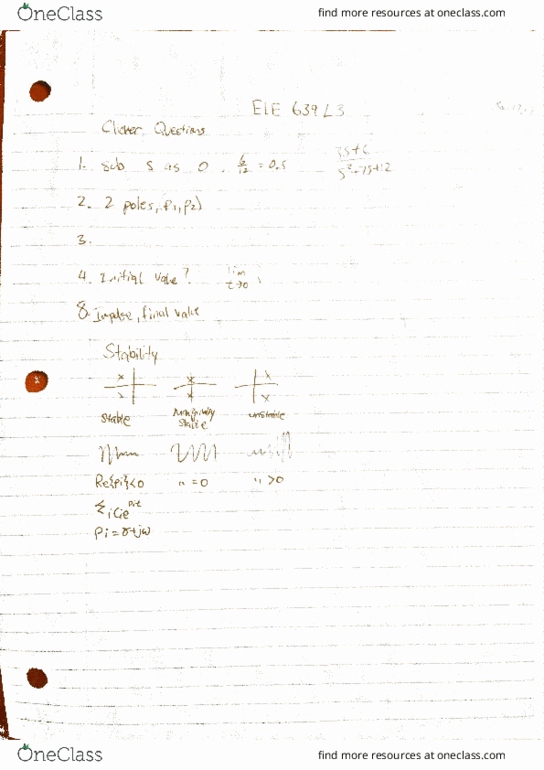 OneClass
find more resources at oneclass.com
ELE 639 L3
Clicker Questions
1. sub s as 0. 6/12 = 0.5
3s+6
s²-7s+12
2. 2 poles, P1, P2)
3.
4. Initial value? lim t→0
8. Impulse, final value
Stability
stable marginally stable unstable
Re{Pi}<0 " =0 " >0
Σi Ci e^Pit
Pi = σ+jω
OneClass
find more resources at oneclass.com